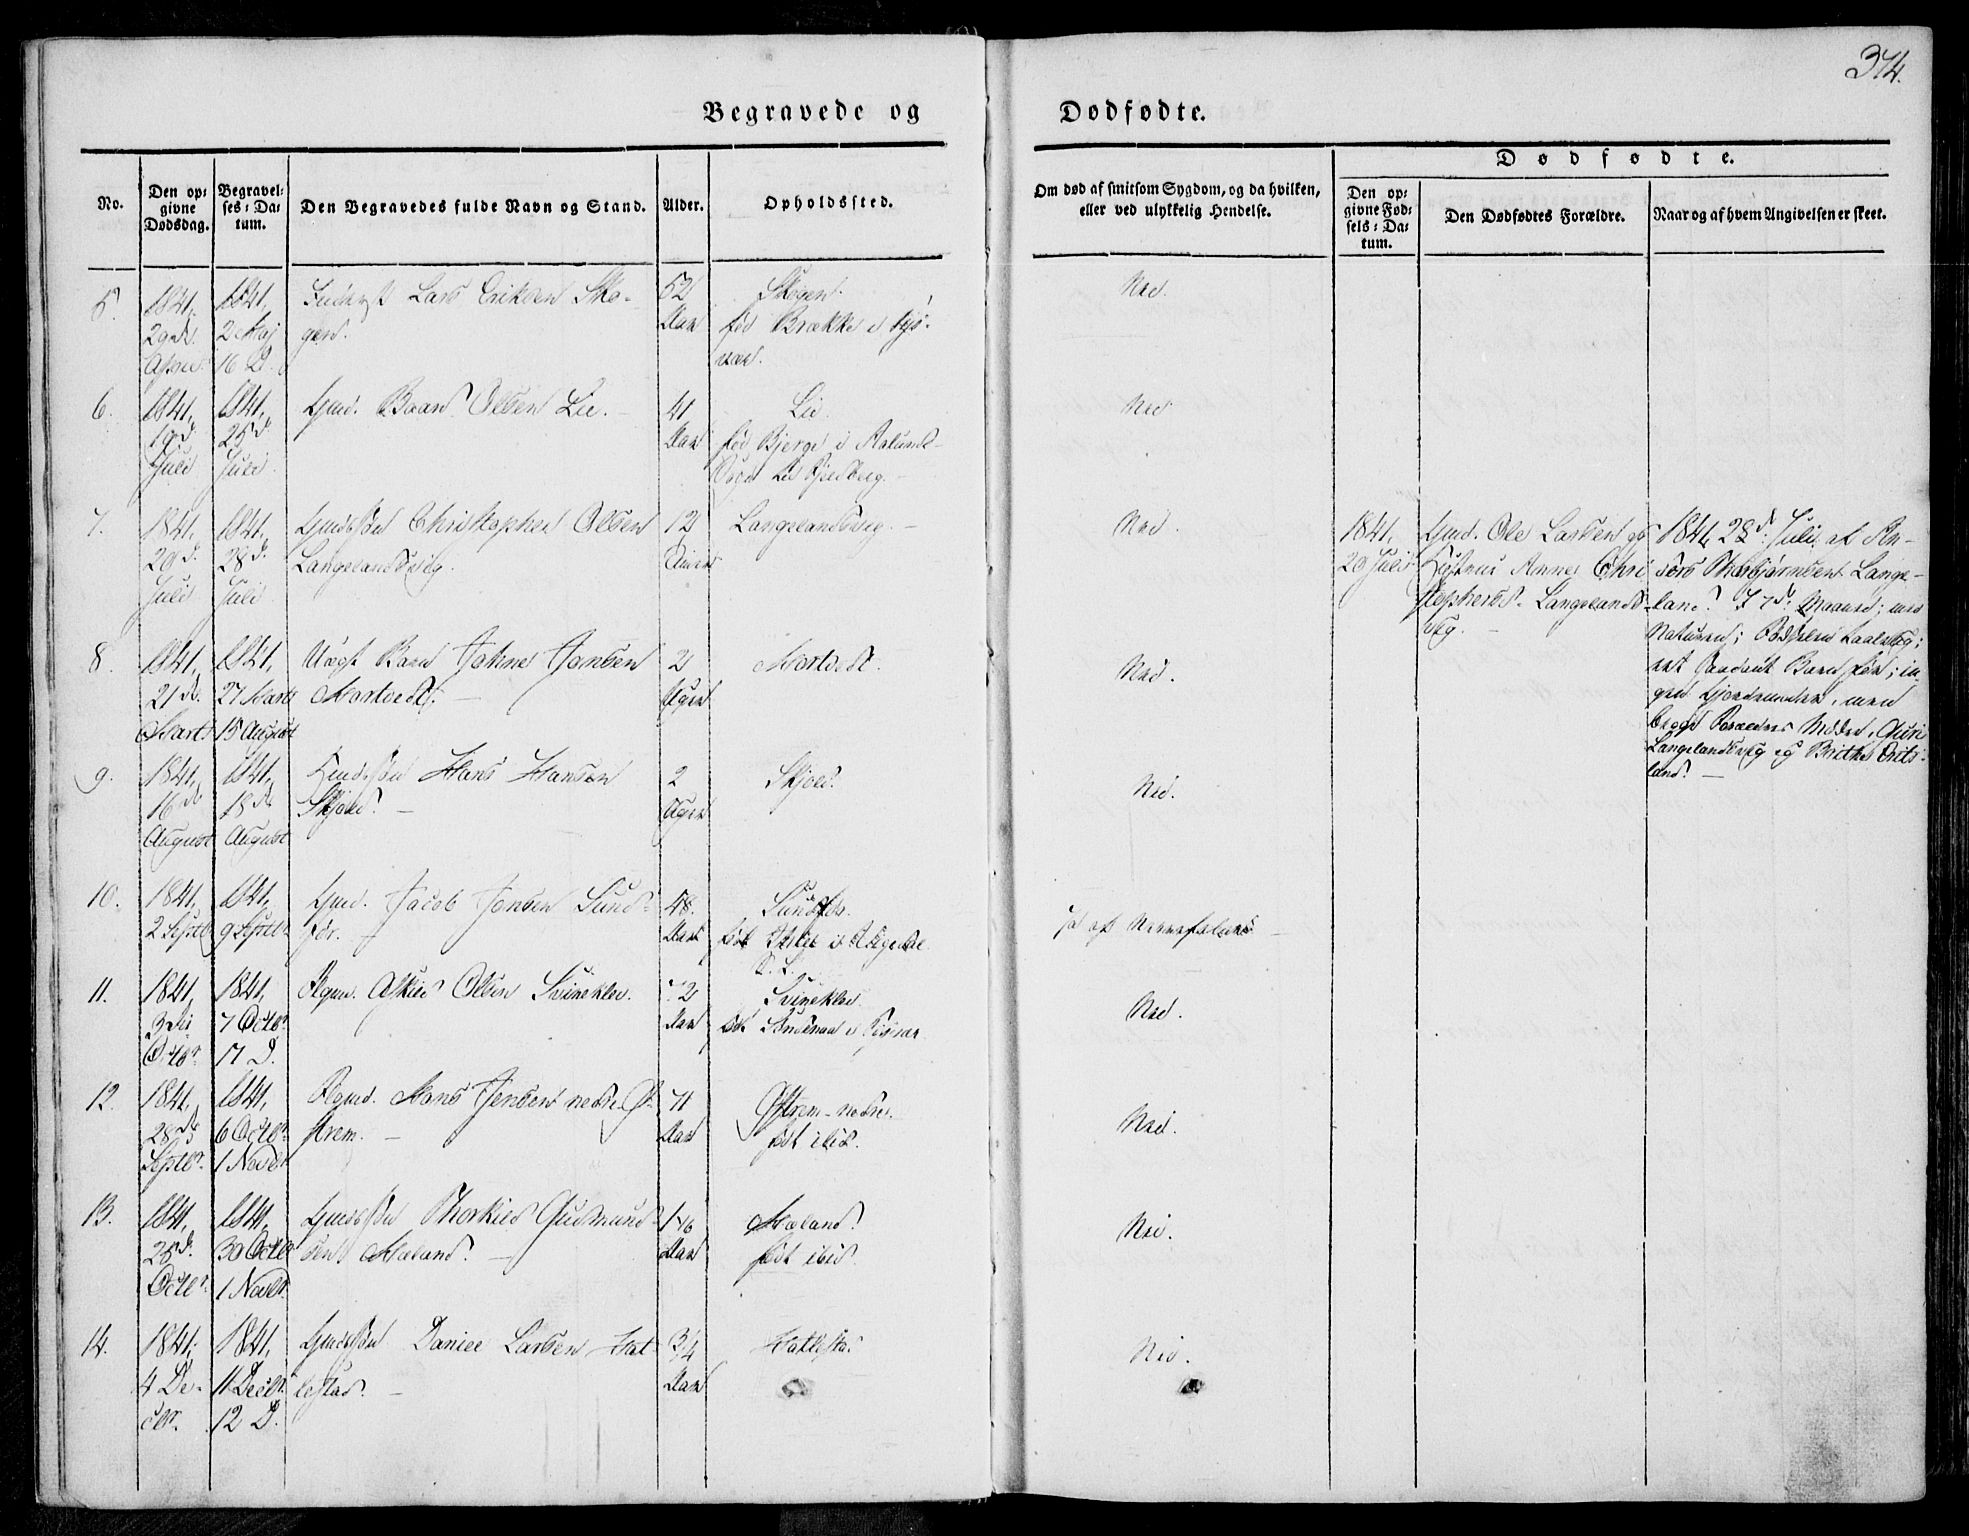 374.
Begravede og Dødfødte.
No.
Den op-
givne
Dødsdag.
Begravel-
ses-Da-
tum.
Den Begravedes fulde Navn og Stand.
Alder.
Opholdssted.
Om død af smitsom Sygdom, og da hvilken,
eller ved ulykkelig Hendelse.
Dødfødte.
Den op-
givne Fød-
sels-Da-
tum.
Den Dødfødtes Forældre.
Naar og af hvem Angivelsen er skeet.
5.
1841,
29de
April
1841,
2 Maj
16 D.
Lars Eriksen Sko-
gen.
52
Aar
Skogen.
fød Brække i
Nei.
6.
1841,
19d.
Juli
1841,
25d.
Juli
Gmd. Baard Olsen Lie.
41
Aar
Lie.
fød Bjerge i
Nei
7.
1841,
20d.
Juli
1841,
28d.
Juli
Christopher Olsen
Langelandsvig.
12
Timer
Langelandsvig.
Nei.
1841,
20 Juli
Gmd. Ole Larsen og
Hustrue Anne Chri
stophersd. Langelands-
vig.
1841, 28d. Juli af An-
ders Thorbjørnsen Lange-
land. I 7de Maaned;
Naturen;
Barn før; in-
gen Gjordemoder, men
begge Forældres Mødre, Guri
Langelandsvig og Brithe
land.
8.
1841,
21de
Marts
1841,
27 Marts
15 August
Uægt Barn Johne Jonsen
Mortvedt.
2
Uger
Mortvedt.
Nei.
9.
1841,
16de
August
1841,
18de
August
Hans Hansen
Skjold.
2
Uger
Skjold.
Nei.
10.
1841,
2 Septbr
1841,
9 Septbr
Gmd. Jacob Jonsen Sund-
før.
48.
Aar
Sundfør.
født
Ja af Nervefeber
11.
1841,
3die
Octbr.
1841,
7 Octbr.
17 D.
Olsen Svineklev.
72
Aar
Svineklev.
født
Nei.
12.
1841,
28de
Septbr.
1841,
6 Octbr.
1 Novbr.
Hans Jensen nedre Ø-
strem.
71
Aar
Østrem nedre.
født ibid.
Nei.
13.
1841,
25d.
Octbr.
1841,
30 Octbr
1 Novbr.
Thorkild Gudmund-
sen Mæland.
Aar
Mæland.
født ibid.
Nei.
14.
1841,
4 De-
cbr.
1841,
11 Decbr.
12 D.
Daniel Larsen Hat-
lestad.
3/4
Aar
Hatlestad
Nei.